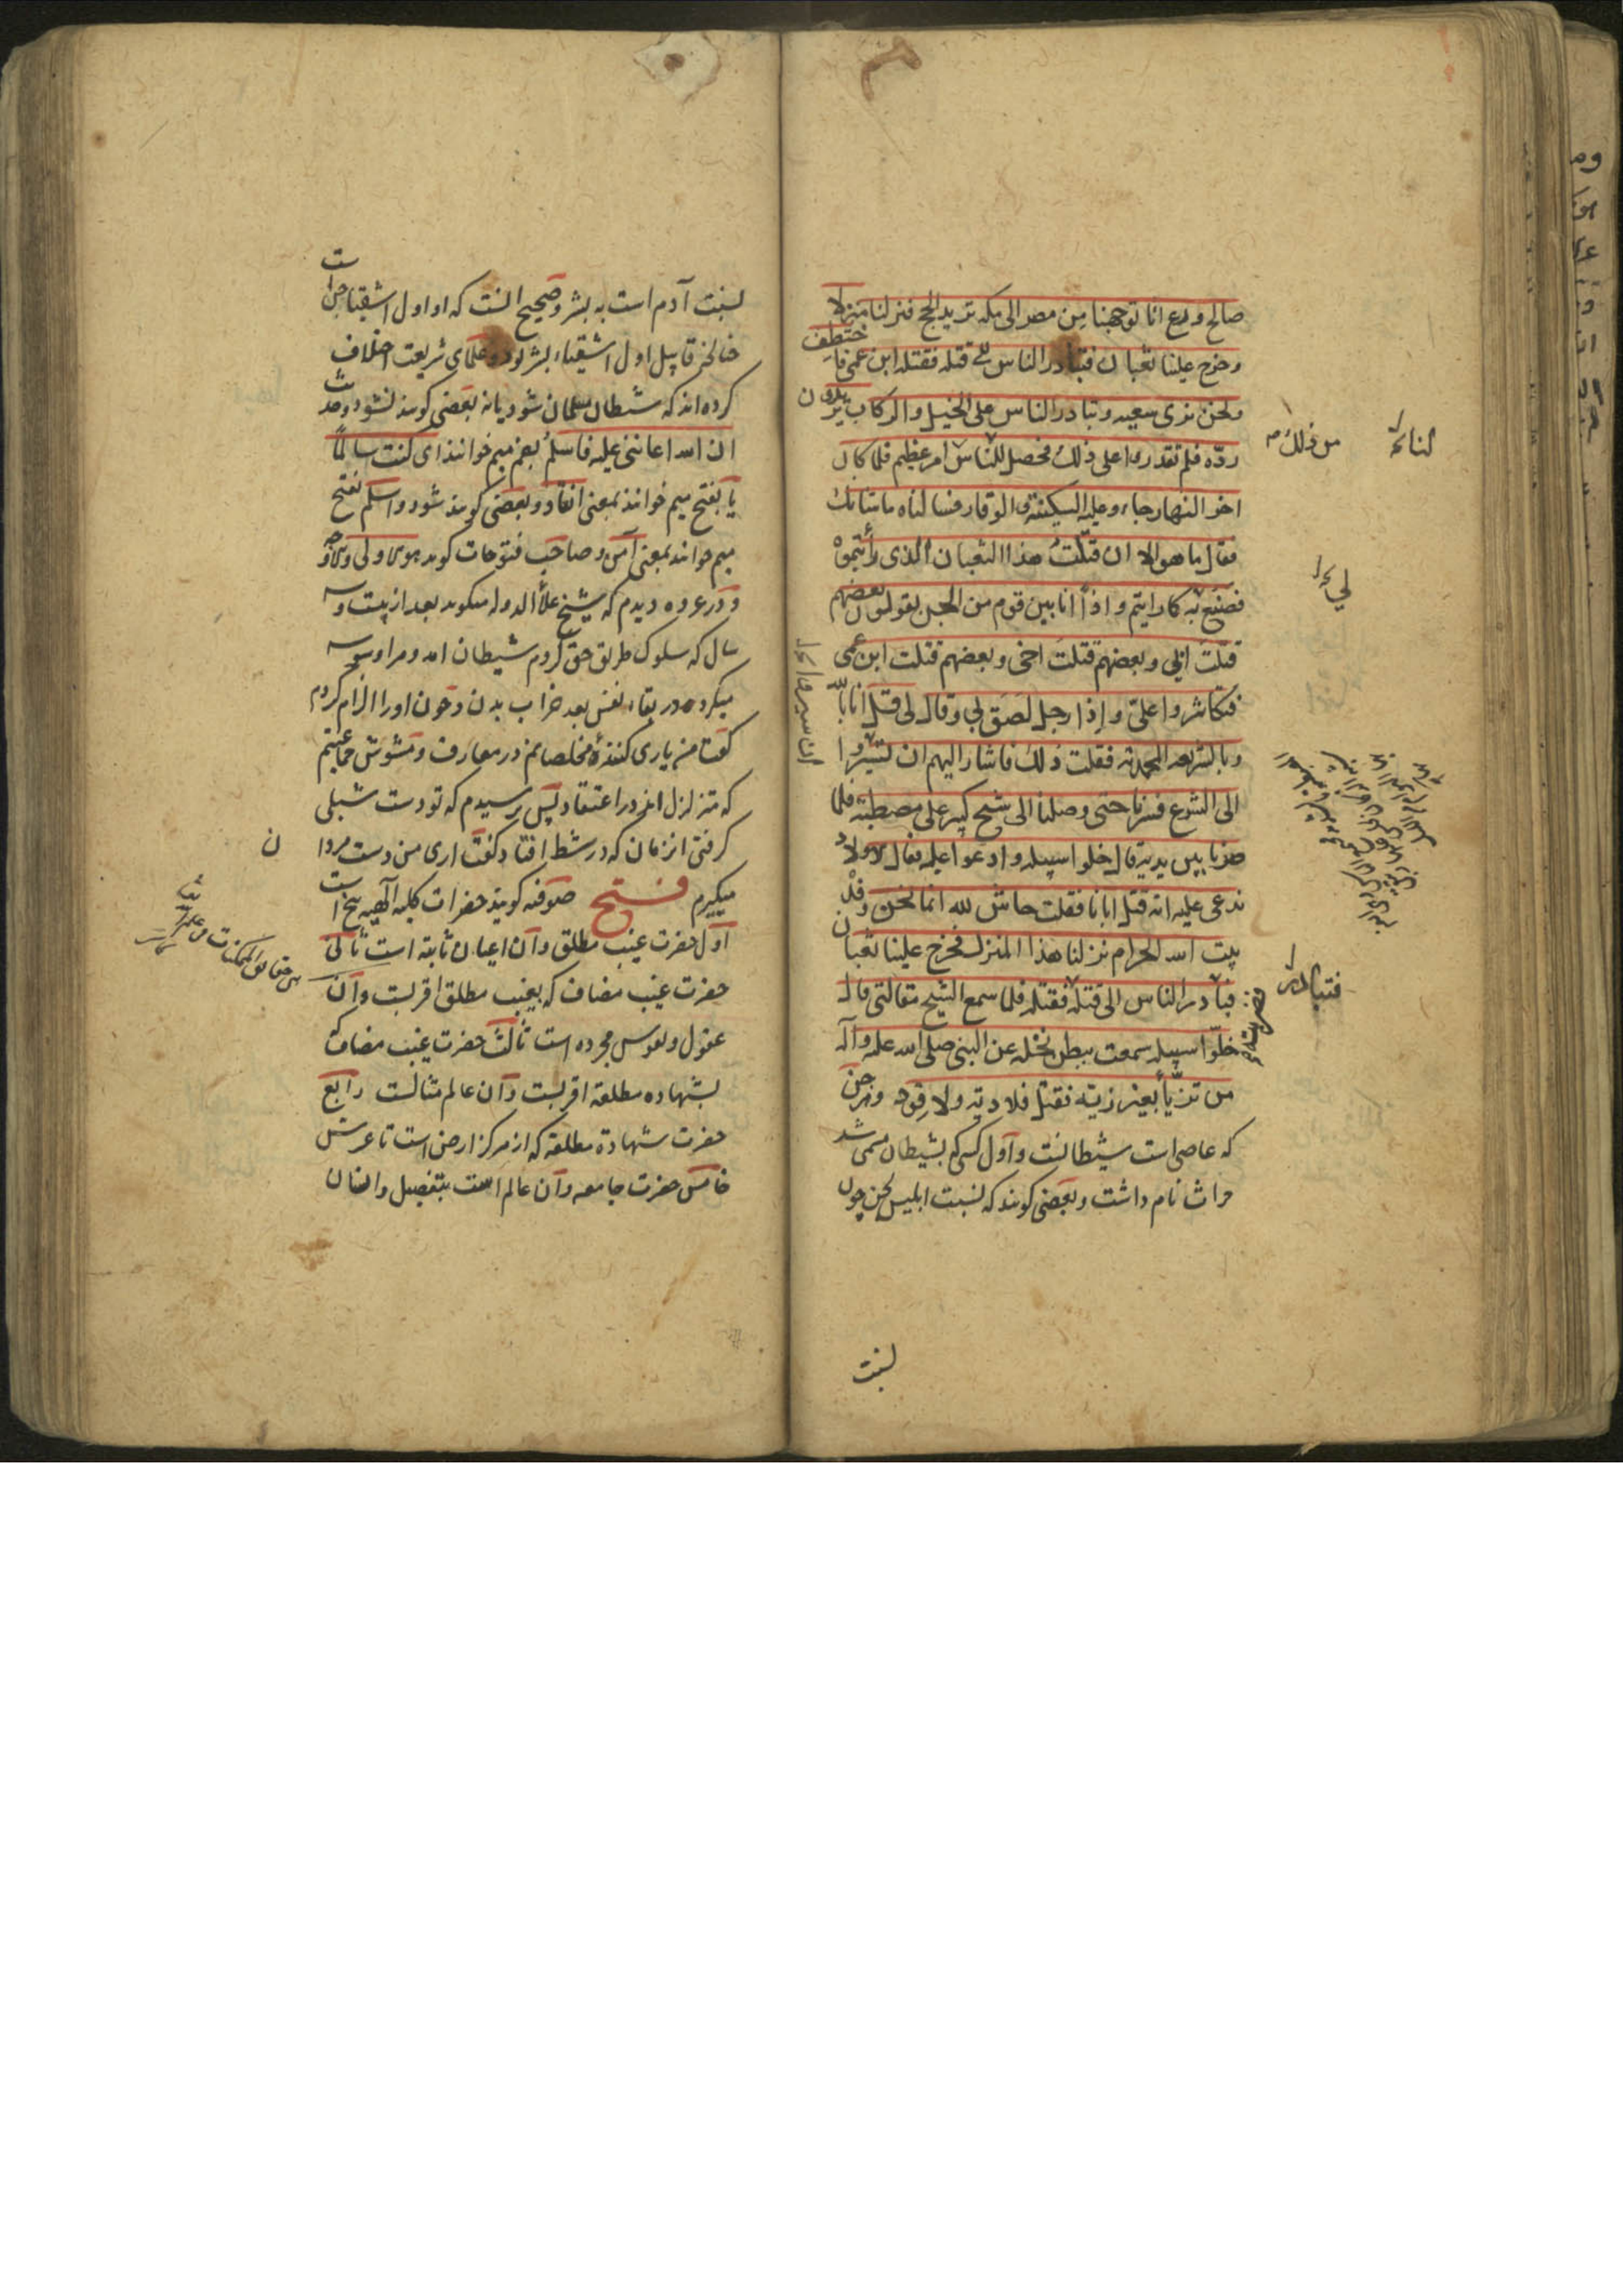 صالح ورع انا توجهنا من مصر الى مكه نريد الحج فنزلنا منزلا
وخرج علينا ثعبان فتبادر الناس الى قتله فقتله ابن عمى فاختطف
ونحن نرى سعيه وتبادر الناس على الخيل والركاب يريدون
ردّه فلم تقدروا على ذلك فحصل للناس امر عظيم فلما كان
اخر النهار جاء وعليه السكينة والوقار فسالناه ما شانك
فقال ما هو الا ان قتلت هذا الثعبان الذى رأيتموه
فصنع به كما رايتم واذا انا بين قوم من الجن يقولون بعضهم
قتلت ابى وبعضهم قتلت اخى وبعضهم قتلت ابن عمى
فتكاثروا علىّ واذا رجل لصق لى وقال لى قل انا بالله
وبالشريعة المحمدية فقلت ذلك فاشار اليهم ان تسيروا
الى الشرع فسرنا حتى وصلنا الى شيخ كبير على مصطبة فلما
صرنا بين يديه قال خلوا سبيله وادعوا عليه فقال الاولاد
ندعى عليه انه قتل ابانا فقلت حاش لله انما نحن وفد
بيت الله الحرام نزلنا هذا المنزل فخرج علينا ثعبان
فتبادر الناس الى قتله فقتلته فلما سمع الشيخ مقالتى قال
خلوا سبيله سمعت ببطن نخله عن النبى صلى الله عليه وآله
من تزيّا بغير زيّه فقتل فلا دية ولا قود وهر جن
كه عاصى است شيطانست واول كسى كه بشيطان مسمى شد
حراث نام داشت وبعضى كويند كه نسبت ابليس بجن چون
لنا
من ذلك
لي
فتبادر
نسبت
نسبت آدم است به بشر وصحيح انست كه او اول اشقيا جن است
چنانچه قابيل اول اشقياء بشر بود وعلماى شريعت اختلاف
كرده اند كه شيطان مسلمان شود يا نه بعضى كويند نشود وحديث
ان الله اعاننى عليه فاسلم بضم ميم خوانند اى كنت سالما
يا بفتح ميم خوانند بمعنى انقاد وبعضى كويند شود واسلم بفتح
ميم خوانند بمعنى آمن وصاحب فتوحات كويد
ودر عروه ديدم كه شيخ علاء الدوله ميكويد بعد از بيست وسه
سال كه سلوك طريق حق كردم شيطان امد ومرا وسوسه
ميكرد در بقاء نفس بعد خراب بدن وچون اورا الزام كردم
كفت من يارى كننده مخلصانم در معارف ومشوش جماعتيم
كه متزلزل اند در اعتقاد پس پرسيدم كه تو دست شبلى
كرفتى انزمان كه در شط افتاد كفت ارى من دست مردان
ميكيرم فتح صوفيه كويند حضرات كليه الهيه پنج است
اول حضرت غيب مطلق وآن اعيان ثابته است ثانى
حضرت غيب مضاف كه بغيب مطلق اقربست وآن
عقول ونفوس مجرده است ثالث حضرت غيب مضاف كه
بشهاده مطلقه اقربست وآن عالم مثالست رابع
حضرت شهادة مطلقه كه از مركز ارض است تا عرش
خامس حضرت جامعه وآن عالم است بتفصيل وانسان